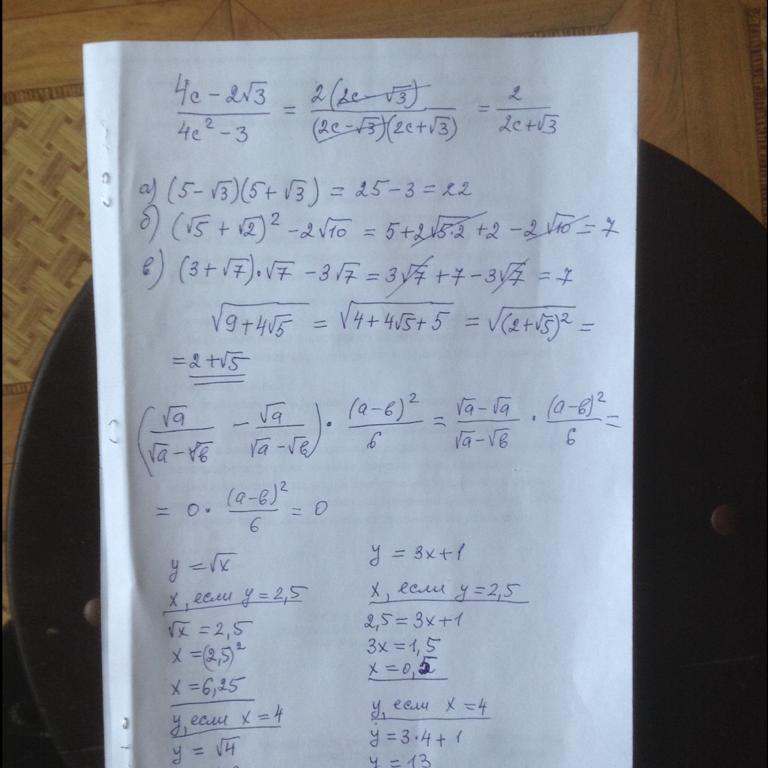 (4c - 2√3)/(4c² - 3) = 2(2c - √3)/((2c - √3)(2c + √3)) = 2/(2c + √3)
а) (5 - √3)(5 + √3) = 25 - 3 = 22
б) (√5 + √2)² - 2√10 = 5 + 2√5·2 + 2 - 2√10 = 7
в) (3 + √7)·√7 - 3√7 = 3√7 + 7 - 3√7 = 7
√(9 + 4√5) = √(4 + 4√5 + 5) = √((2 + √5)²) =
= 2 + √5
(√a/(√a - √в) - √a/(√a - √в)) · (a - в)²/6 = (√a - √a)/(√a - √в) · (a - в)²/6 =
= 0 · (a - в)²/6 = 0
y = √x
x, если y = 2,5
√x = 2,5
x = (2,5)²
x = 6,25
y, если x = 4
y = √4
y = 3x + 1
x, если y = 2,5
2,5 = 3x + 1
3x = 1,5
x = 0,5
y, если x = 4
y = 3·4 + 1
y = 13